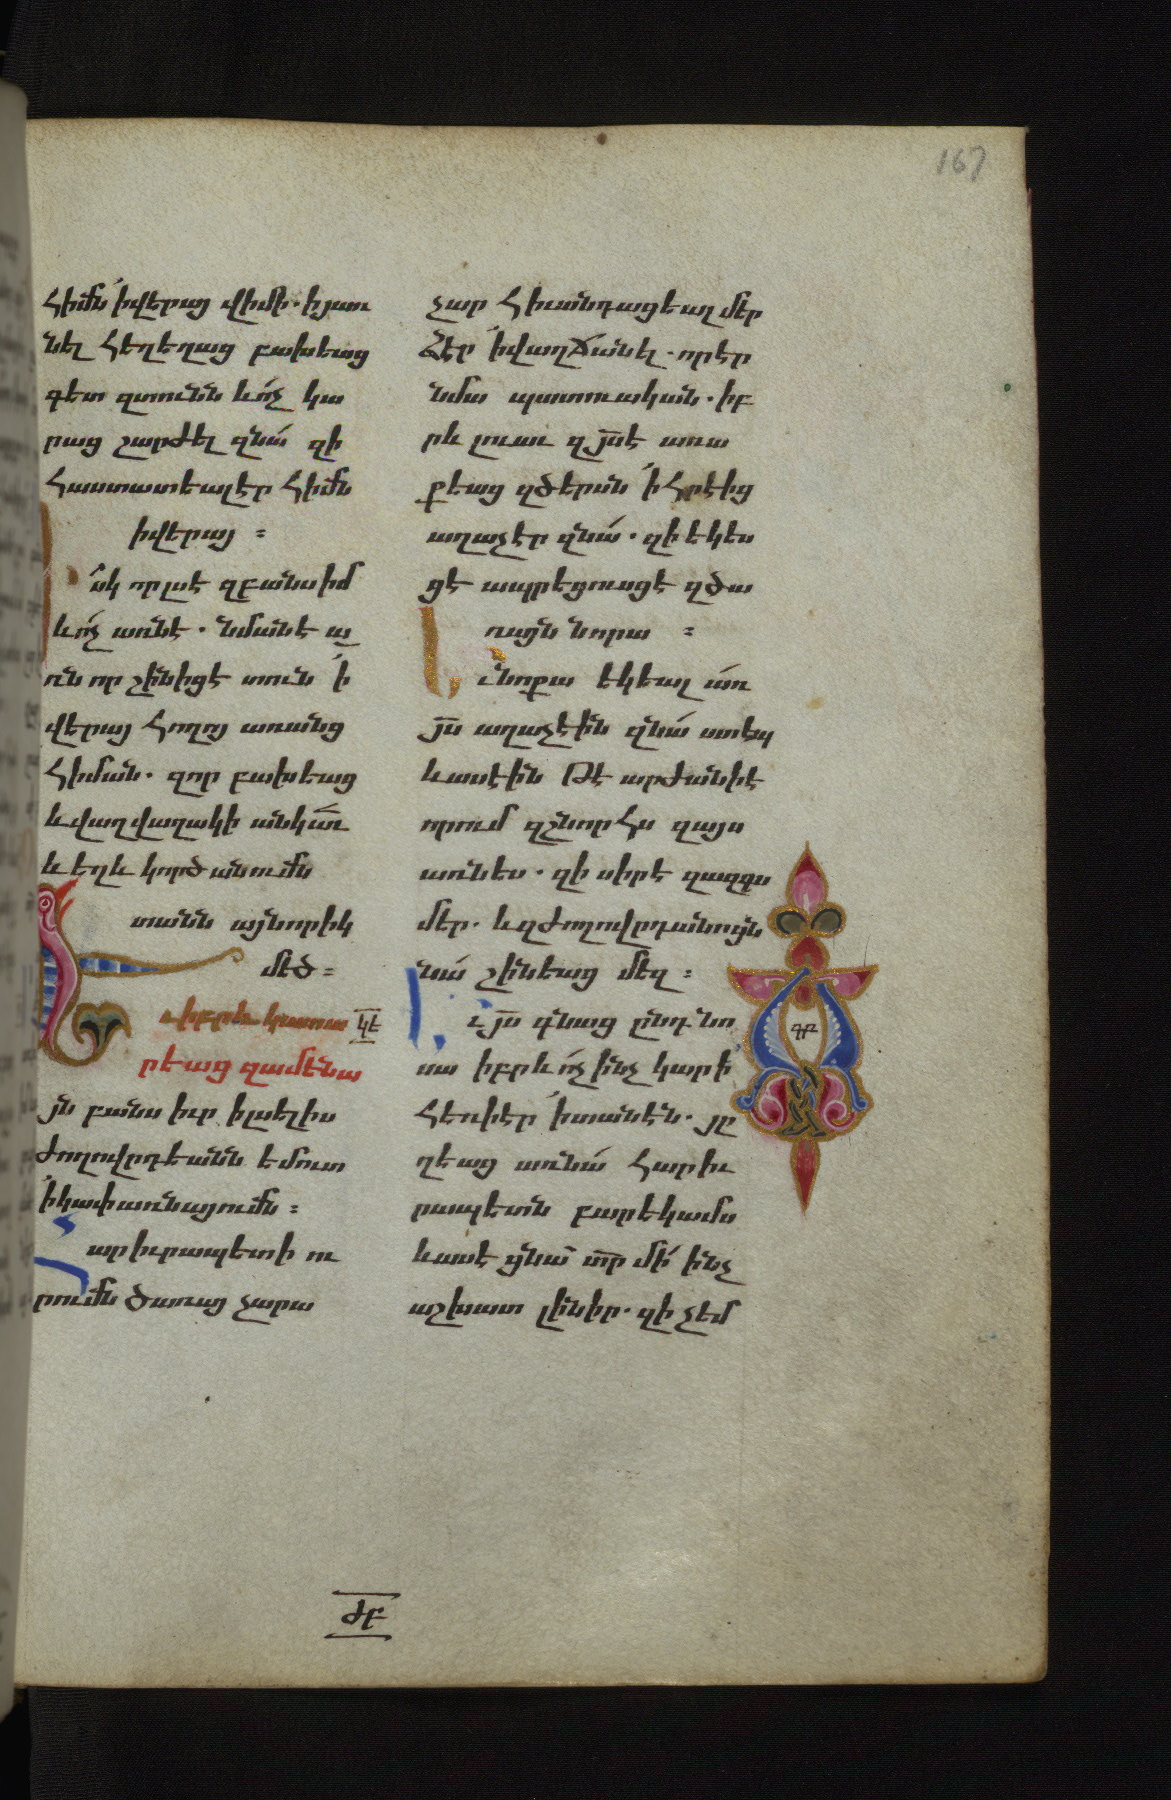 167
հիմն ՛ի վերայ վիմի. ի յառ
նել հեղեղաց բախեաց
գետ զտունն և ոչ կա
րաց շարժել զնա զի
հաստատեալ էր հիմն
ի վերայ :
Իսկ որ լսէ զբանս իմ
և ոչ առնէ. նման է այ
ռն որ շինիցէ տուն ՛ի
վերայ հողոյ առանց
հիման. զոր բախեաց
և վաղվաղակի անկաւ
և եղև կործանումն
տանն այնորիկ
մեծ :
Եւ իբրև կատա
կէ
րեաց զամենա
յն բանս իւր ի լսելիս
ժողովրդեանն եմուտ
՛ի կափառնայումն :
Հարիւրապետի ու
րումն ծառայ չարա
չար հիւանդացեալ մեր
ձ էր ՛ի վաղճանել. որ էր
նմա պատուական. իբ
րև լուաւ զյս̅է առա
քեաց զծերսն ՛ի հրէից
աղաչէր զնա. զի եկես
ցէ ապրեցուսցէ զծա
ռայն նորա :
Եւ նոքա եկեալ առ
յս̅ աղաչէին զնա ստէպ
և ասէին թէ արժանի է
որում զշնորհս զայս
առնես. զի սիրէ զազգս
մեր. և զժողովրդանոցն
նա շինեաց մեզ :
Եւ յս̅ գնաց ընդ նո
սա իբրև ոչ ինչ կարի
հեռի էր ՛ի տանէն. յը
ղեաց առ նա հարիւ
րապետն բարեկամս
և ասէ ցնա տր̅ մի ինչ
աշխատ լինիր. զի չեմ
ժբ